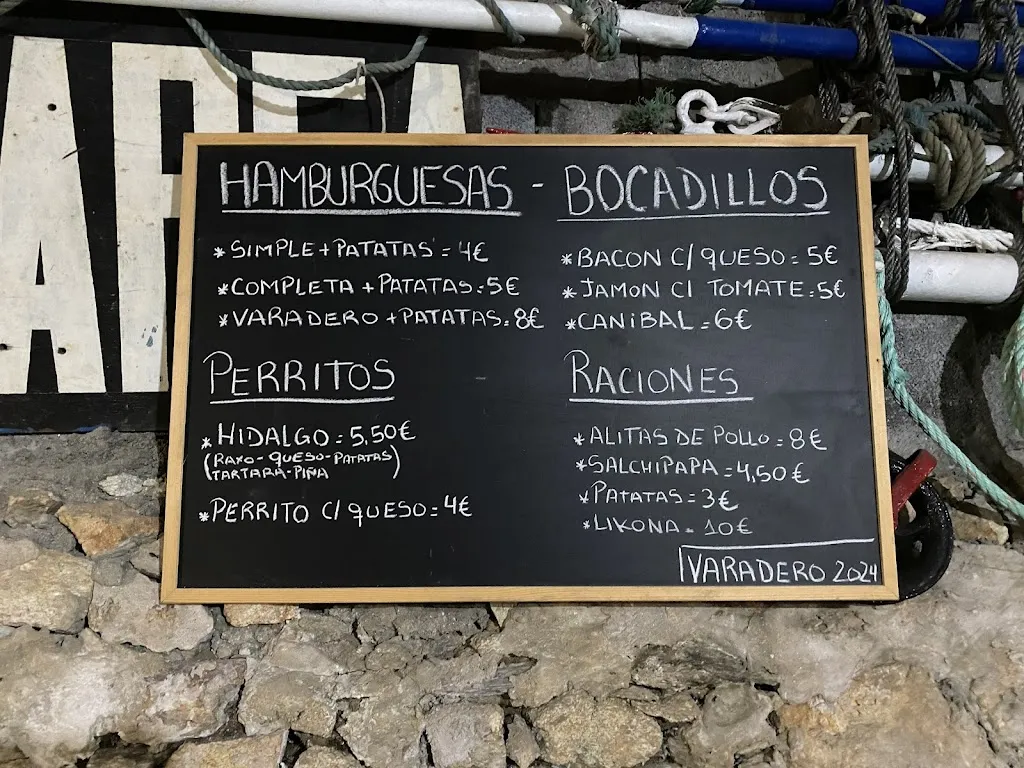 HAMBURGUESAS - BOCADILLOS
* SIMPLE + PATATAS = 4€
* COMPLETA + PATATAS = 5€
* VARADERO + PATATAS = 8€
* BACON C/ QUESO = 5€
* JAMON C/ TOMATE = 5€
* CANIBAL = 6€
PERRITOS
* HIDALGO = 5,50€
(RAXO-QUESO-PATATAS
TARTARA-PIÑA)
* PERRITO C/ QUESO = 4€
RACIONES
* ALITAS DE POLLO = 8€
* SALCHIPAPA = 4,50€
* PATATAS = 3€
* LIKONA = 10€
VARADERO 2024